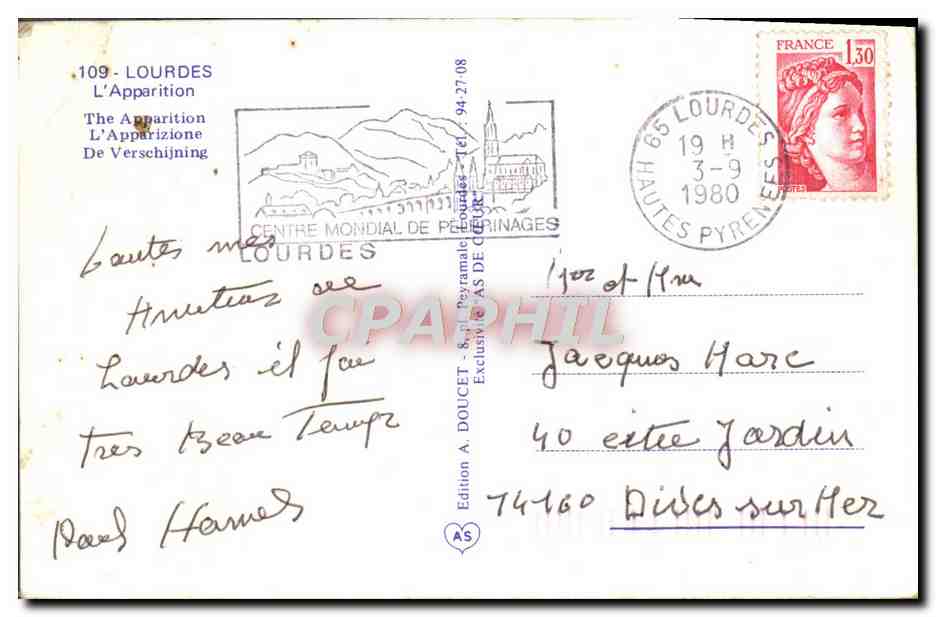 109 - LOURDES
L'Apparition
The Apparition
L'Apparizione
De Verschijning
CENTRE MONDIAL DE PÈLERINAGES
LOURDES
65 LOURDES
19 H
3-9
1980
HAUTES PYRENEES
FRANCE
1,30
POSTES
toutes mes
Amitiés de
Lourdes il fai
Tres Beau Temps
Paul Hamel
Edition A. DOUCET - 8, pl. Peyramale, Lourdes - Tél. : 94-27-08
Exclusivité "AS DE CŒUR"
AS
Mr et Mme
Jacques Marc
40 citée Jardin
14160 Dives sur Mer
CPAPHIL